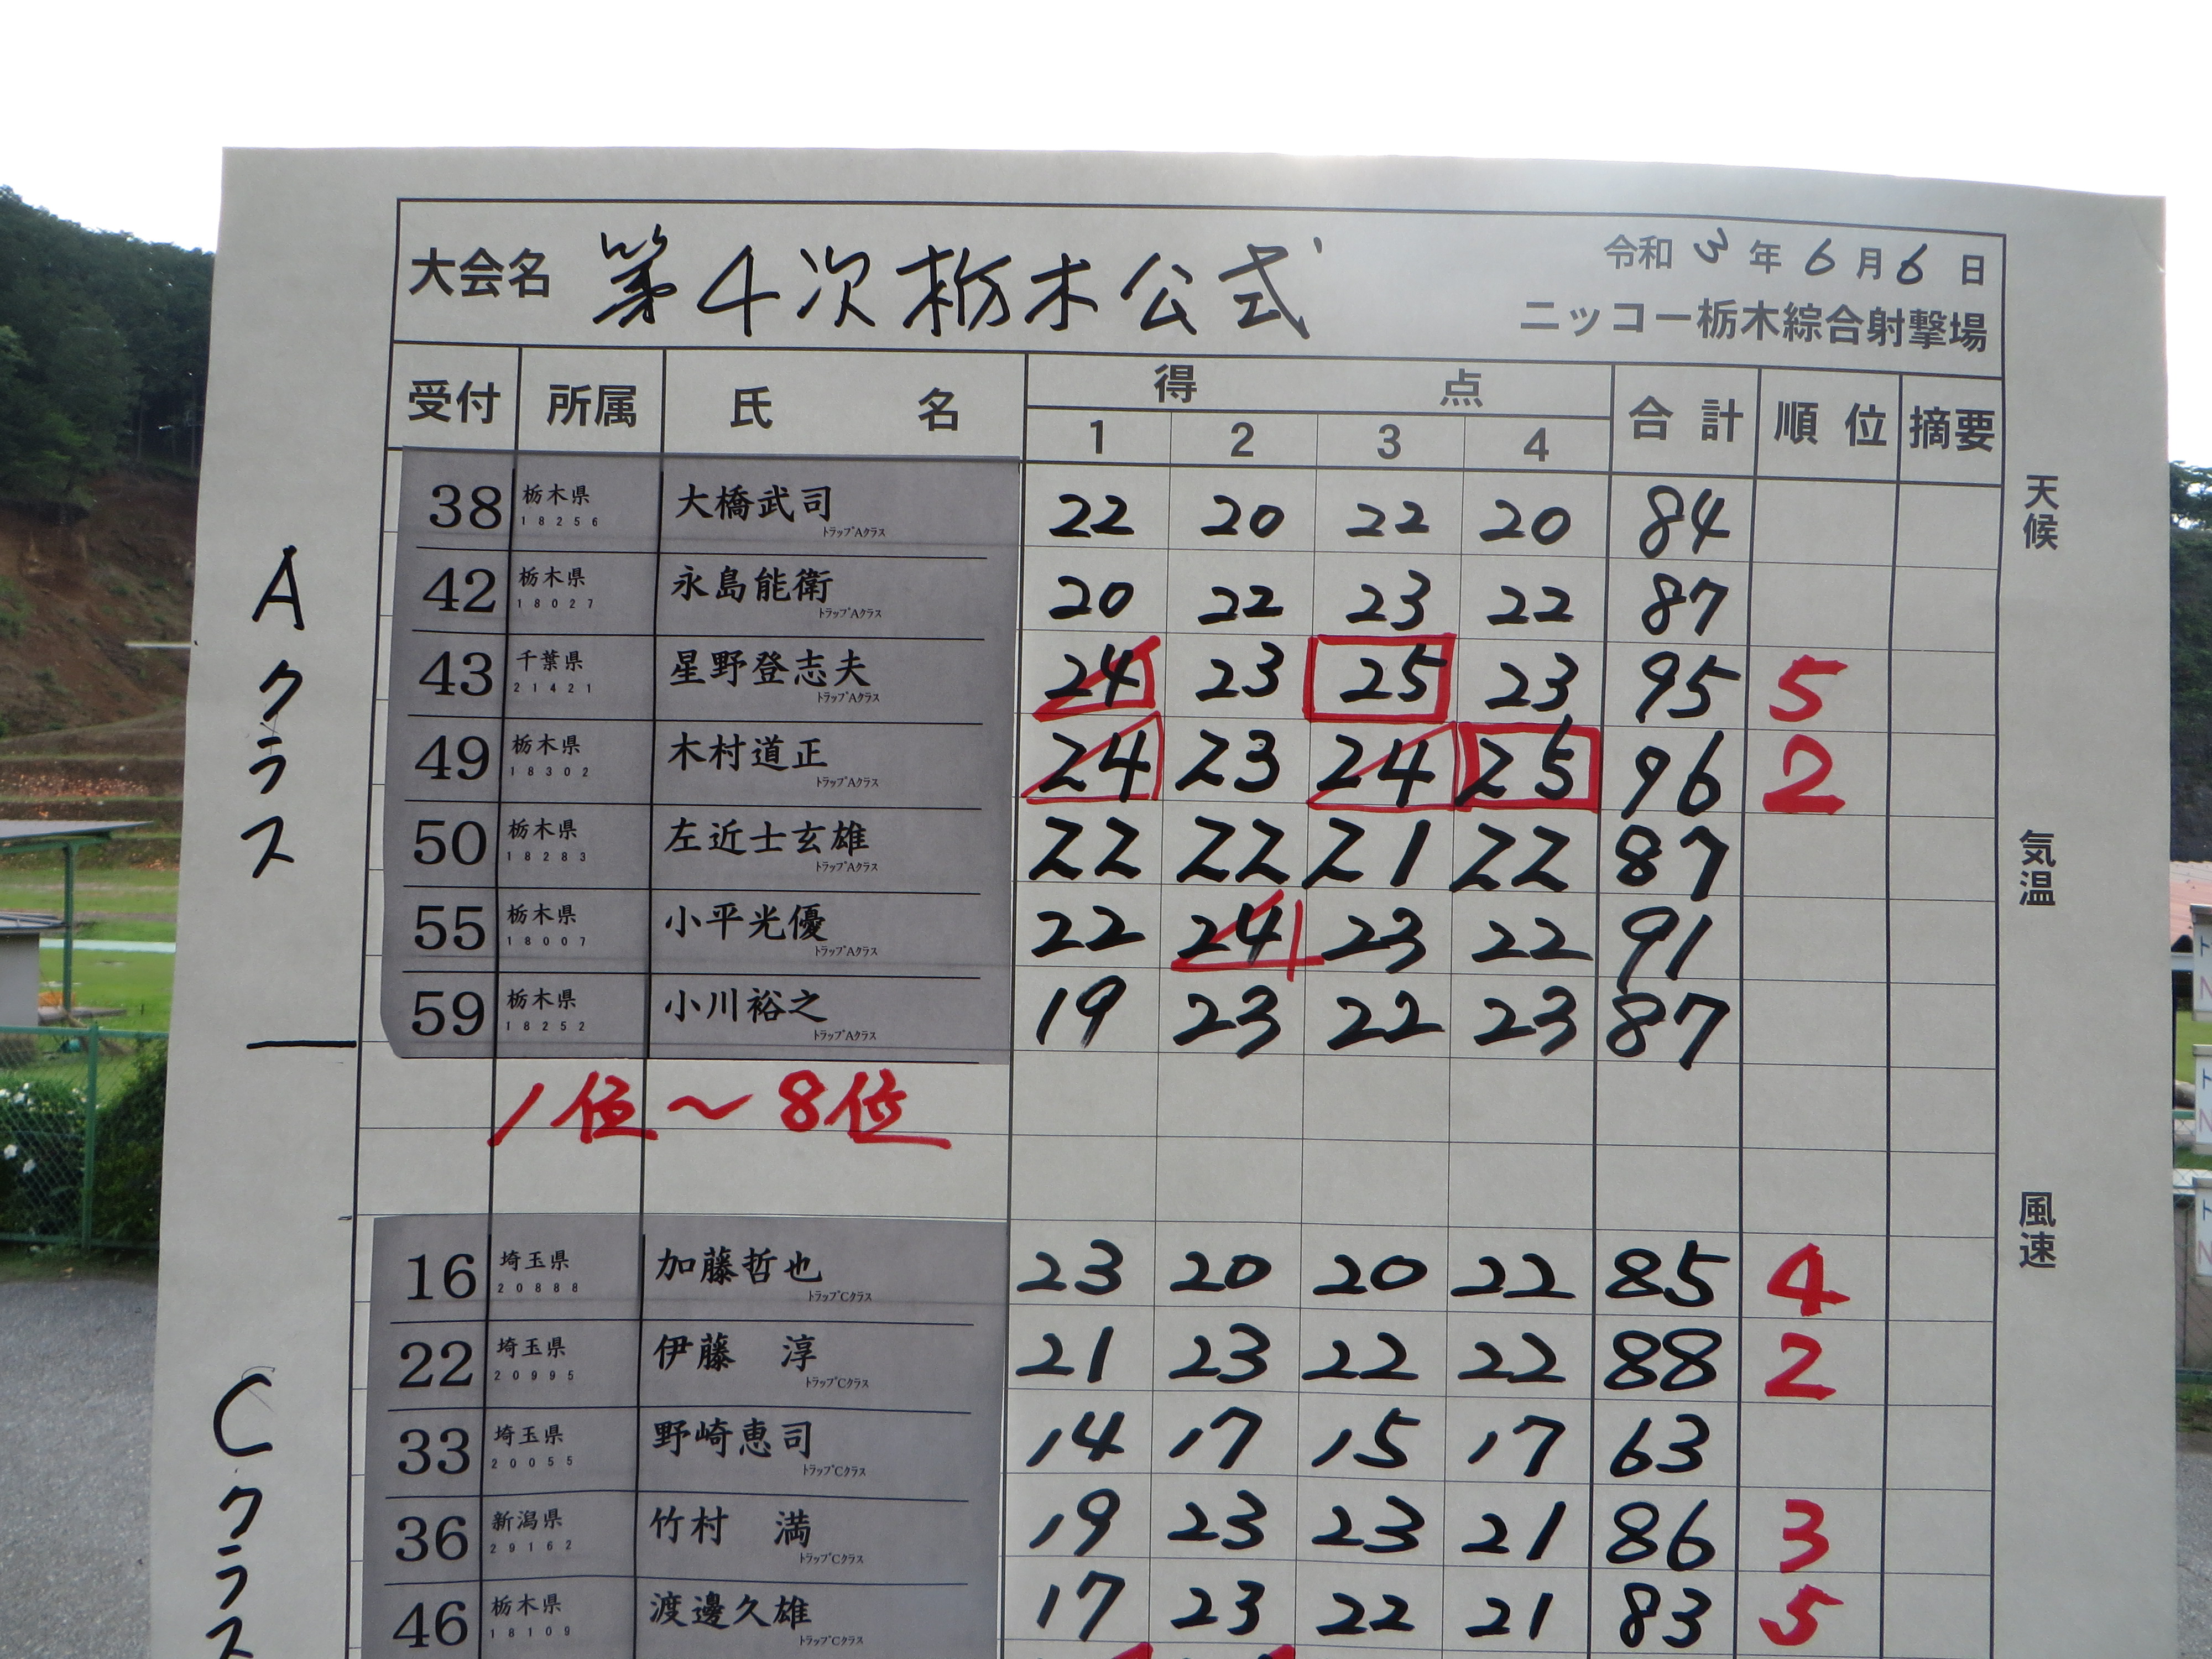 大会名 第4次栃木公式 令和3年6月6日
ニッコー栃木綜合射撃場
受付 所属 氏名 得点 合計 順位 摘要
1 2 3 4
38 栃木県 18256 大橋武司 トラップAクラス 22 20 22 20 84
42 栃木県 18027 永島能衛 トラップAクラス 20 22 23 22 87
43 千葉県 21421 星野登志夫 トラップAクラス 24 23 25 23 95 5
49 栃木県 18302 木村道正 トラップAクラス 24 23 24 25 96 2
50 栃木県 18283 左近士玄雄 トラップAクラス 22 22 21 22 87
55 栃木県 18007 小平光優 トラップAクラス 22 24 23 22 91
59 栃木県 18252 小川裕之 トラップAクラス 19 23 22 23 87
Aクラス
1位〜8位
16 埼玉県 20888 加藤哲也 トラップCクラス 23 20 20 22 85 4
22 埼玉県 20995 伊藤 淳 トラップCクラス 21 23 22 22 88 2
33 埼玉県 20055 野崎恵司 トラップCクラス 14 17 15 17 63
36 新潟県 29162 竹村 満 トラップCクラス 19 23 23 21 86 3
46 栃木県 18109 渡邊久雄 トラップCクラス 17 23 22 21 83 5
Cクラス
天候
気温
風速